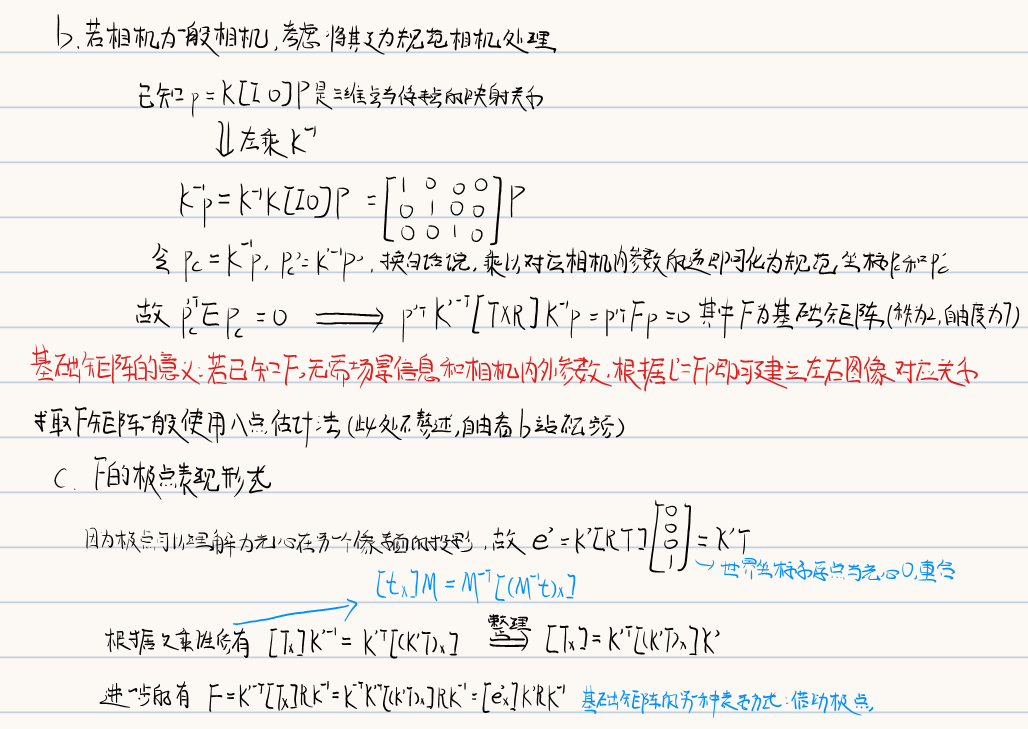 b. 若相机为一般相机,考虑将其变为规范相机处理
已知 p = K[I 0]P 是三维点与像素点的映射关系
⇓ 左乘 K⁻¹
K⁻¹p = K⁻¹K[I 0]P = [1 0 0 0; 0 1 0 0; 0 0 1 0] P
令 p_c = K⁻¹p, p_c' = K'⁻¹p', 换句话说, 乘以对应相机内参数的逆即可化为规范坐标 p_c 和 p_c'
故 p_c'ᵀ E p_c = 0 ⟹ p'ᵀ K'⁻ᵀ [T×R] K⁻¹p = p'ᵀ F p = 0 其中 F 为基础矩阵,(秩为2,自由度为7)
基础矩阵的意义:若已知F,无需场景信息和相机内外参数,根据 l' = Fp 即可建立左右图像对应关系
求取F矩阵一般使用八点估计法(此处不赘述,自由看b站视频)
c. F的极点表现形式
因为极点可以理解为光心在另一个像平面的投影,故 e' = K'[R T] [0; 0; 0; 1] = K'T
→ 世界坐标系原点与光心O₁重合
[t×]M = M⁻ᵀ[(M⁻¹t)×]
根据叉乘性质有 [T×]K'⁻¹ = K'ᵀ[(K'T)×] 整理⟹ [T×] = K'ᵀ[(K'T)×]K'
进一步的有 F = K'⁻ᵀ[T×]RK⁻¹ = K'⁻ᵀK'ᵀ[(K'T)×]K'RK⁻¹ = [e'×]K'RK⁻¹ 基础矩阵的另一种表示方式:借助极点